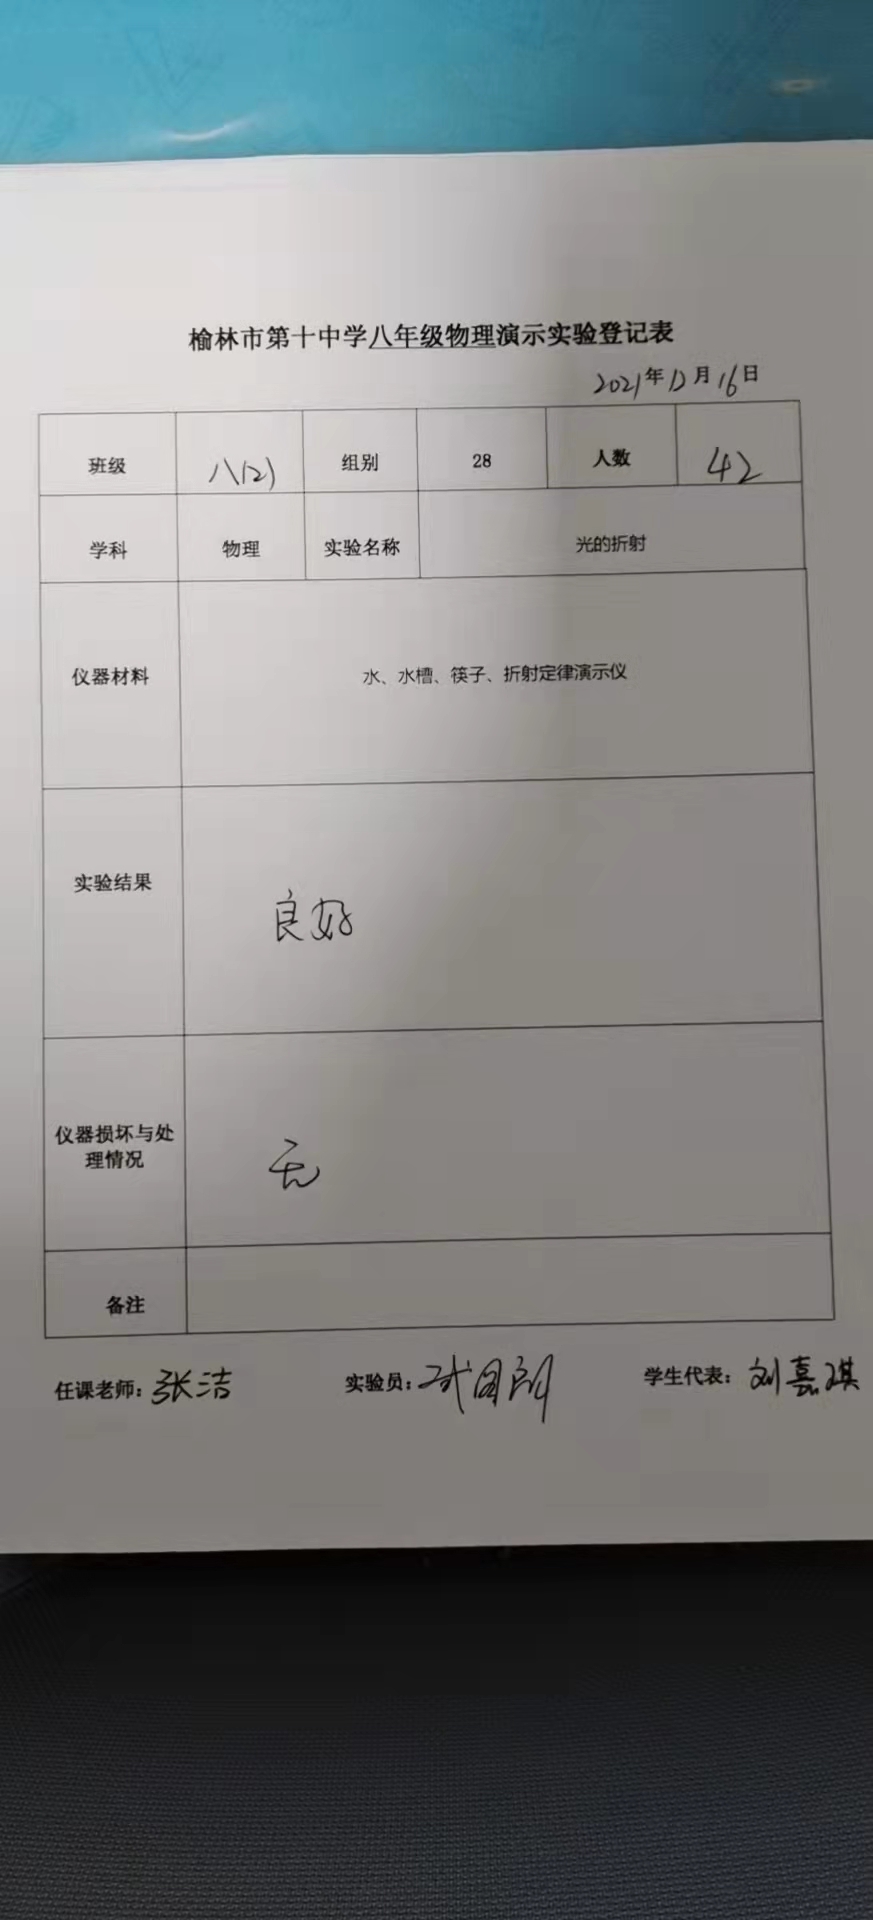 榆林市第十中学八年级物理演示实验登记表
2021年12月16日
班级 八(2) 组别 28 人数 42
学科 物理 实验名称 光的折射
仪器材料 水、水槽、筷子、折射定律演示仪
实验结果 良好
仪器损坏与处
理情况 无
备注
任课老师：张洁 实验员： 学生代表：刘嘉琪